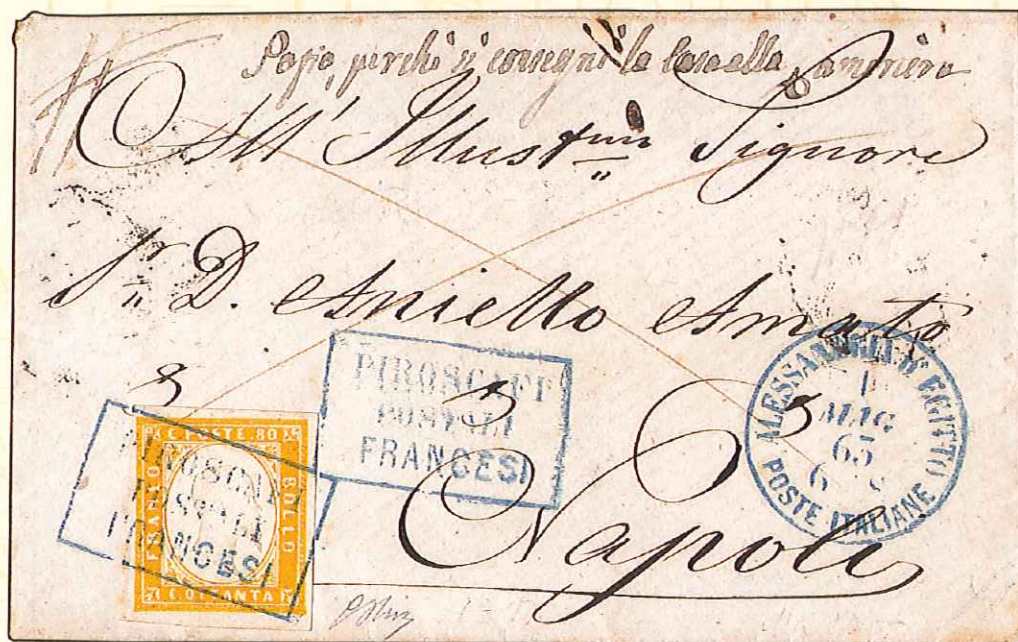 perchè si consegni la
All' Illustmo Signore
Sr D. Aniello Amato
Napoli
PIROSCAFI
POSTALI
FRANCESI
ALESSANDRIA D'EGITTO
1
MAG
63
POSTE ITALIANE
C. POSTE. 80
FRANCO
BOLLO
C. OTTANTA
PIROSCAFI
POSTALI
FRANCESI